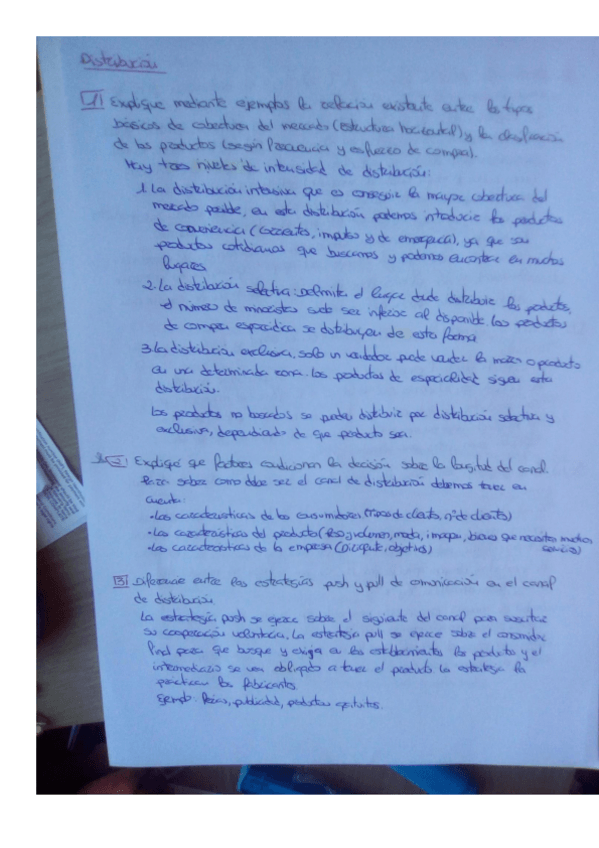 Distribución
1/ Explique mediante ejemplos la relación existente entre los tipos
básicos de cobertura del mercado (estructura horizontal) y la clasificación
de los productos (según frecuencia y esfuerzo de compra).
Hay tres niveles de intensidad de distribución:
1. La distribución intensiva que es conseguir la mayor cobertura del
mercado posible, en esta distribución podemos introducir los productos
de conveniencia (corriente, impulso y de emergencia), ya que son
productos cotidianos que buscamos y podemos encontrar en muchos
lugares
2. La distribución selectiva: delimita el lugar donde distribuir los productos,
el número de minoristas suele ser inferior al disponible. Los productos
de compra esporádica se distribuyen de esta forma
3. La distribución exclusiva, solo un vendedor puede vender la marca o producto
en una determinada zona. Los productos de especialidad siguen esta
distribución.
Los productos no buscados se pueden distribuir por distribución selectiva y
exclusiva, dependiendo de que producto sea.
2. Explique que factores condicionan la decisión sobre la longitud del canal.
Para saber como debe ser el canal de distribución debemos tener en
cuenta:
- Las características de los consumidores (tipos de cliente, nº de clientes)
- Las características del producto (Peso, volumen, moda, imagen, bienes que necesitan muchos
servicios)
- Las características de la empresa (objetivos)
3/ Diferencie entre las estrategias push y pull de comunicación en el canal
de distribución.
La estrategia push se ejerce sobre el siguiente del canal para suscitar
su cooperación voluntaria. La estrategia pull se ejerce sobre el consumidor
final para que busque y exija en los establecimientos los productos y el
intermediario se vea obligado a tener el producto. La estrategia la
practican los fabricantes.
Ejemplo: ferias, publicidad, productos gratuitos.